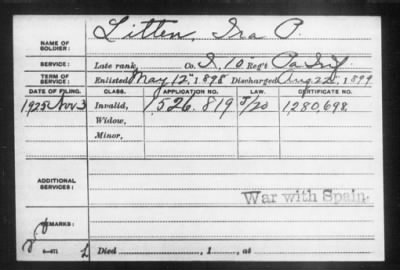 NAME OF SOLDIER: Litten, Ira P.
SERVICE: Late rank, Co. I, 10 Reg't Pa Inf
TERM OF SERVICE: Enlisted May 12", 1898 Discharged Aug. 22", 1899
DATE OF FILING. CLASS. APPLICATION NO. LAW. CERTIFICATE NO.
1925 Nov 3 Invalid, 1,526,819 1,280,698.
Widow,
Minor,
ADDITIONAL SERVICES:
War with Spain.
REMARKS:
Died , 1 , at